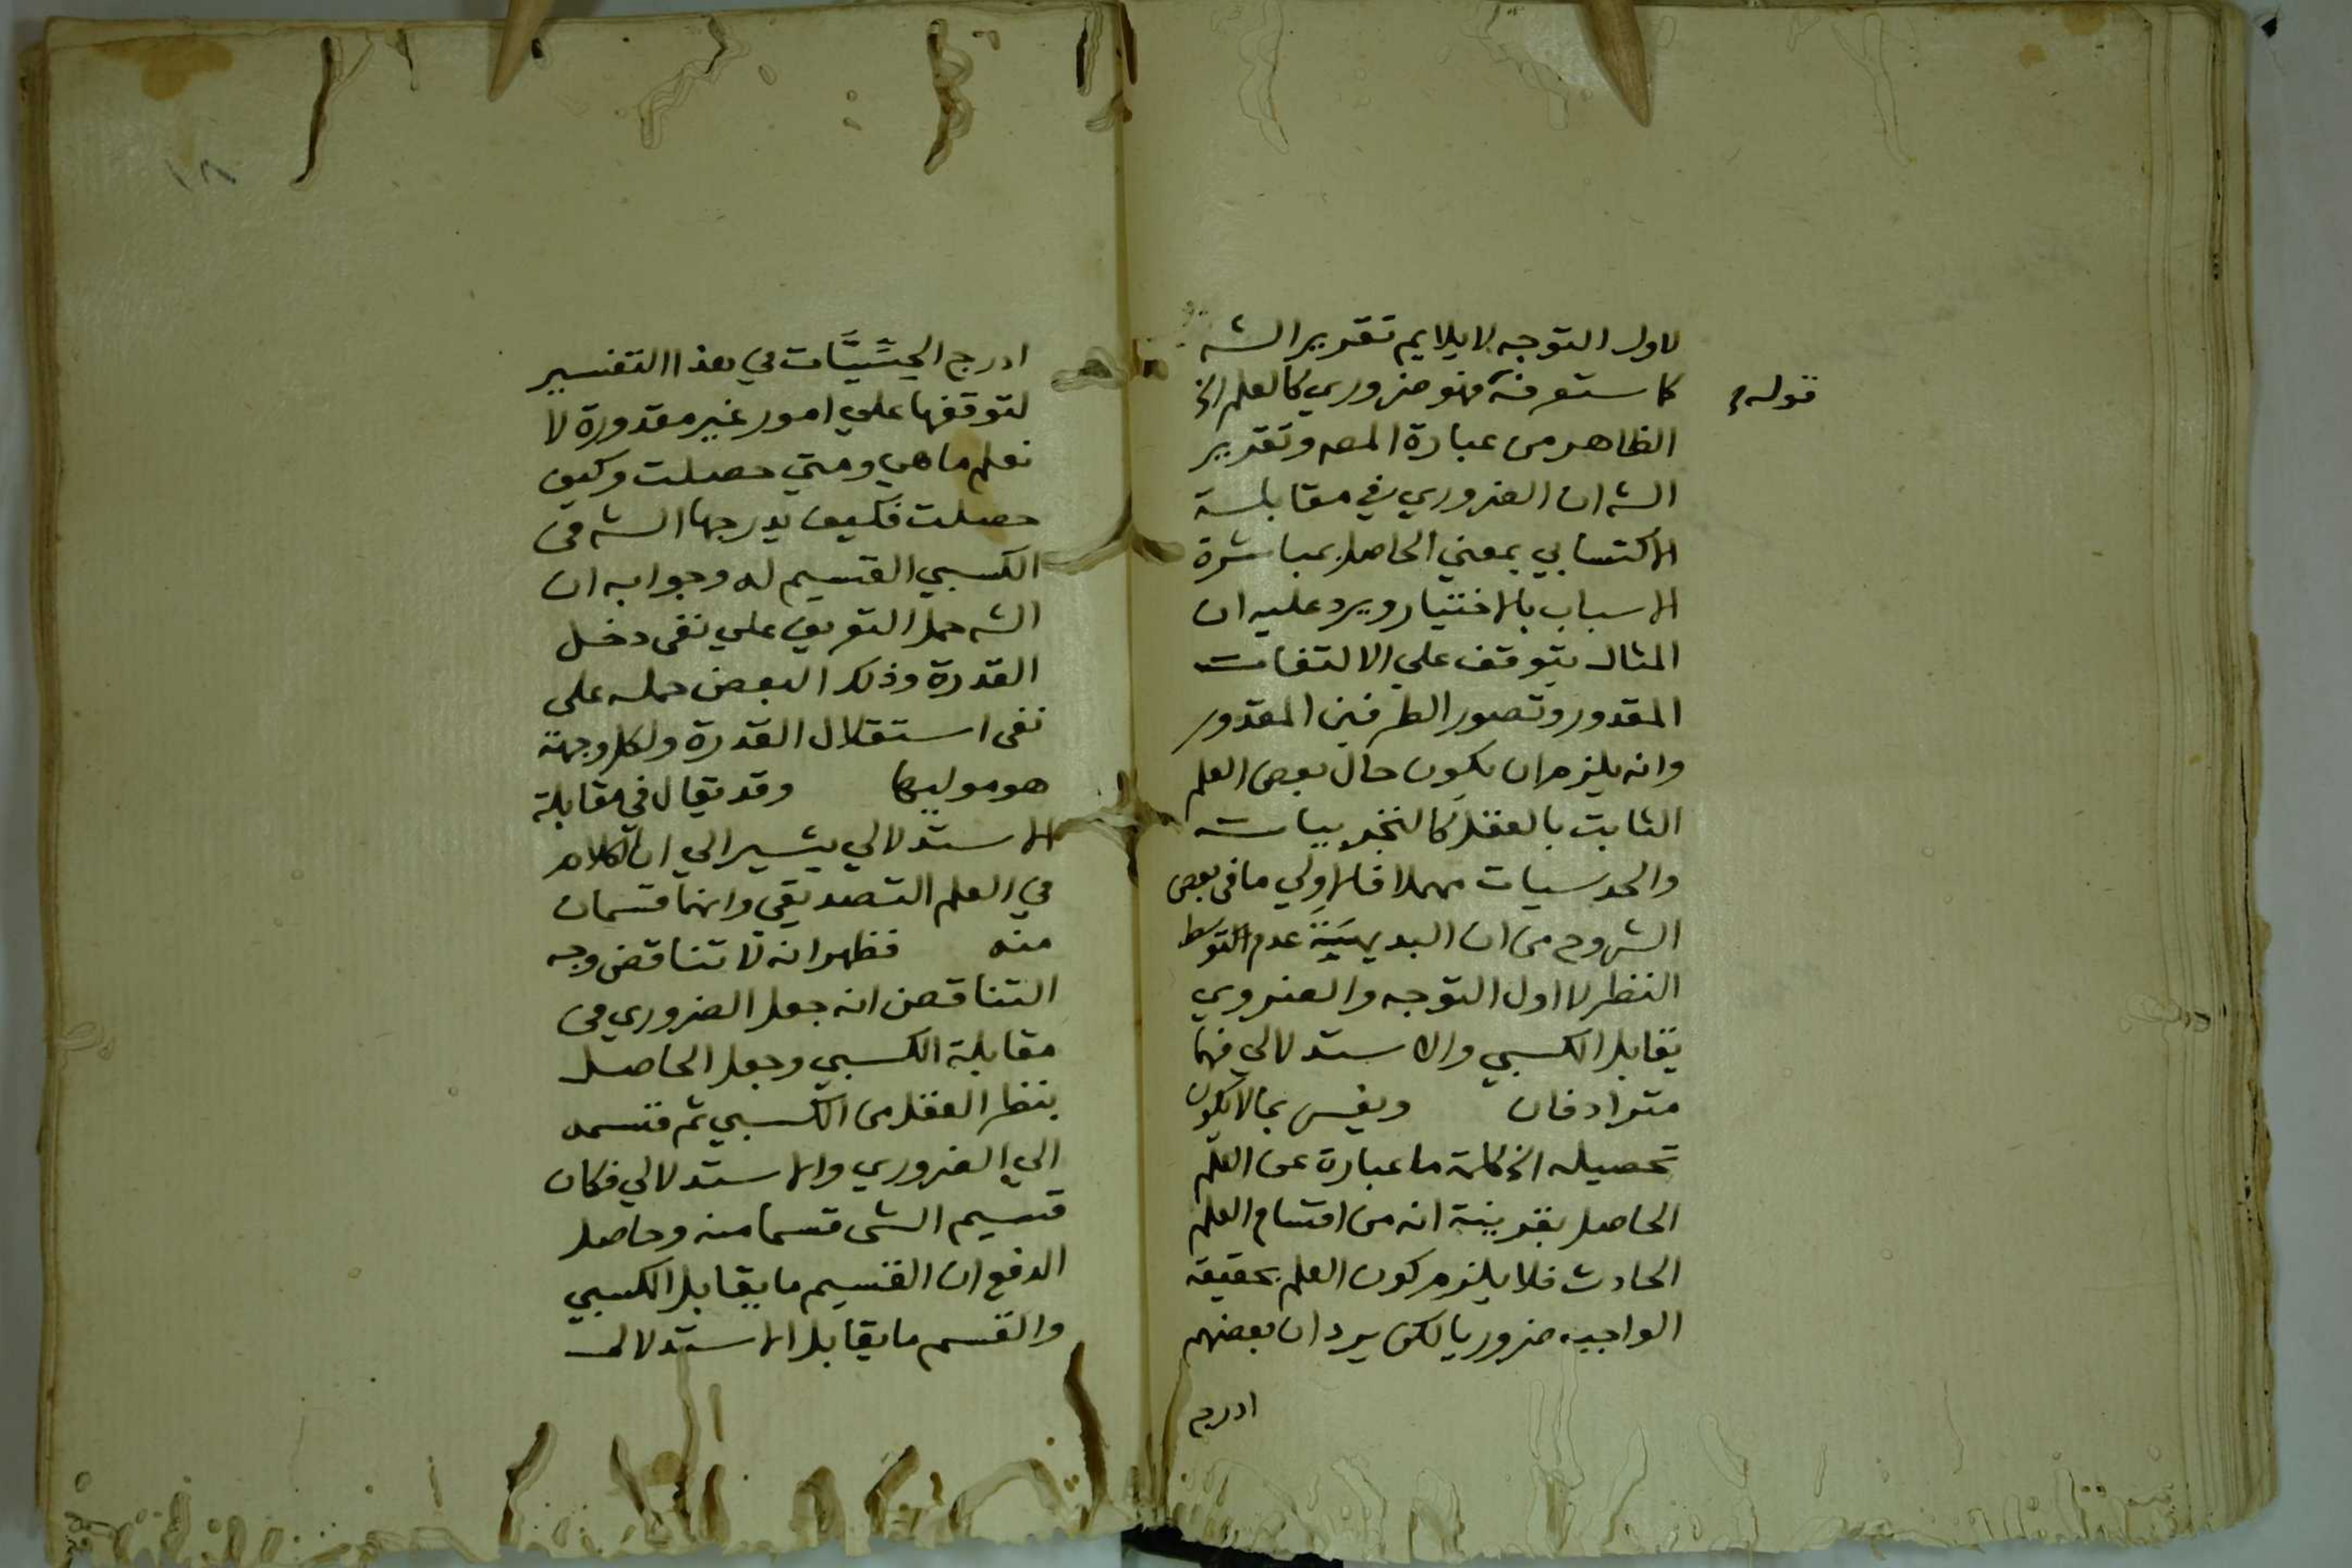 لاول التوجه لا يلايم تقرير الشه
كا ستعرفنه فهو ضروري كالعلم الخ
قوله
الظاهر من عبارة المصه وتقرير
الشه ان الضروري في مقابلة
الاكتسابي بمعني الحاصل بمباشرة
الاسباب بالاختيار ويرد عليه ان
المثال يتوقف علي الالتفات
المقدور وتصور الطرفين المقدور
وانه يلزم ان يكون حال بعض العلم
الثابت بالعقل كالتجربيات
والحدسيات مهملا فالاولي ما في بعض
الشروح من ان البديهية عدم التوسط
النظر لا اول التوجه والضروي
يقابل الكسبي والاستدلالي فهما
مترادفان ويفسر بما لا يكون
تحصيله الخ كلمة ما عبارة عن العلم
الحاصل بقرينة انه من اقسام العلم
الحادث فلا يلزم كون العلم بحقيقة
الواجب ضروريا لكن يرد ان بعضهم
ادرج
١٨
ادرج الحسيات في هذا التفسير
لتوقفها علي امور غير مقدورة لا
نعلم ما هي ومتي حصلت وكيف
حصلت فكيف يدرجها الشه في
الكسبي القسيم له وجوابه ان
الشه حمل التعريف علي نفي دخل
القدرة وذلك البعض حمله على
نفي استقلال القدرة ولكل وجهة
هو موليها وقد يقال في مقابلة
الاستدلالي يشير الي ان الكلام
في العلم التصديقي وانهما قسمان
منه فظهر انه لا تناقض وجه
التناقض انه جعل الضروري في
مقابلة الكسبي وجعل الحاصل
بنظر العقل من الكسبي ثم قسمه
الي الضروري والاستدلالي فكان
قسيم الشي قسما منه وحاصل
الدفع ان القسيم ما يقابل الكسبي
والقسم ما يقابل الاستدلالي